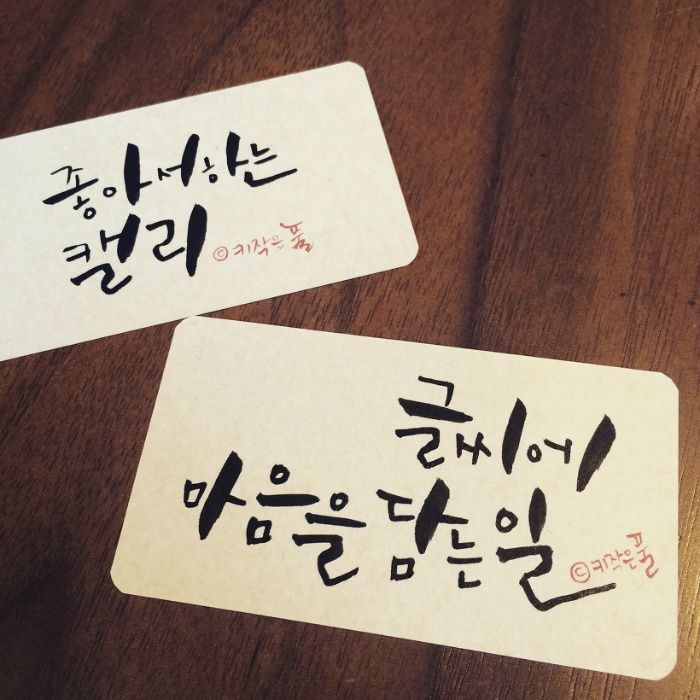 좋아서하는
캘리 ©키작은풀
글씨에
마음을 담는 일
©키작은풀